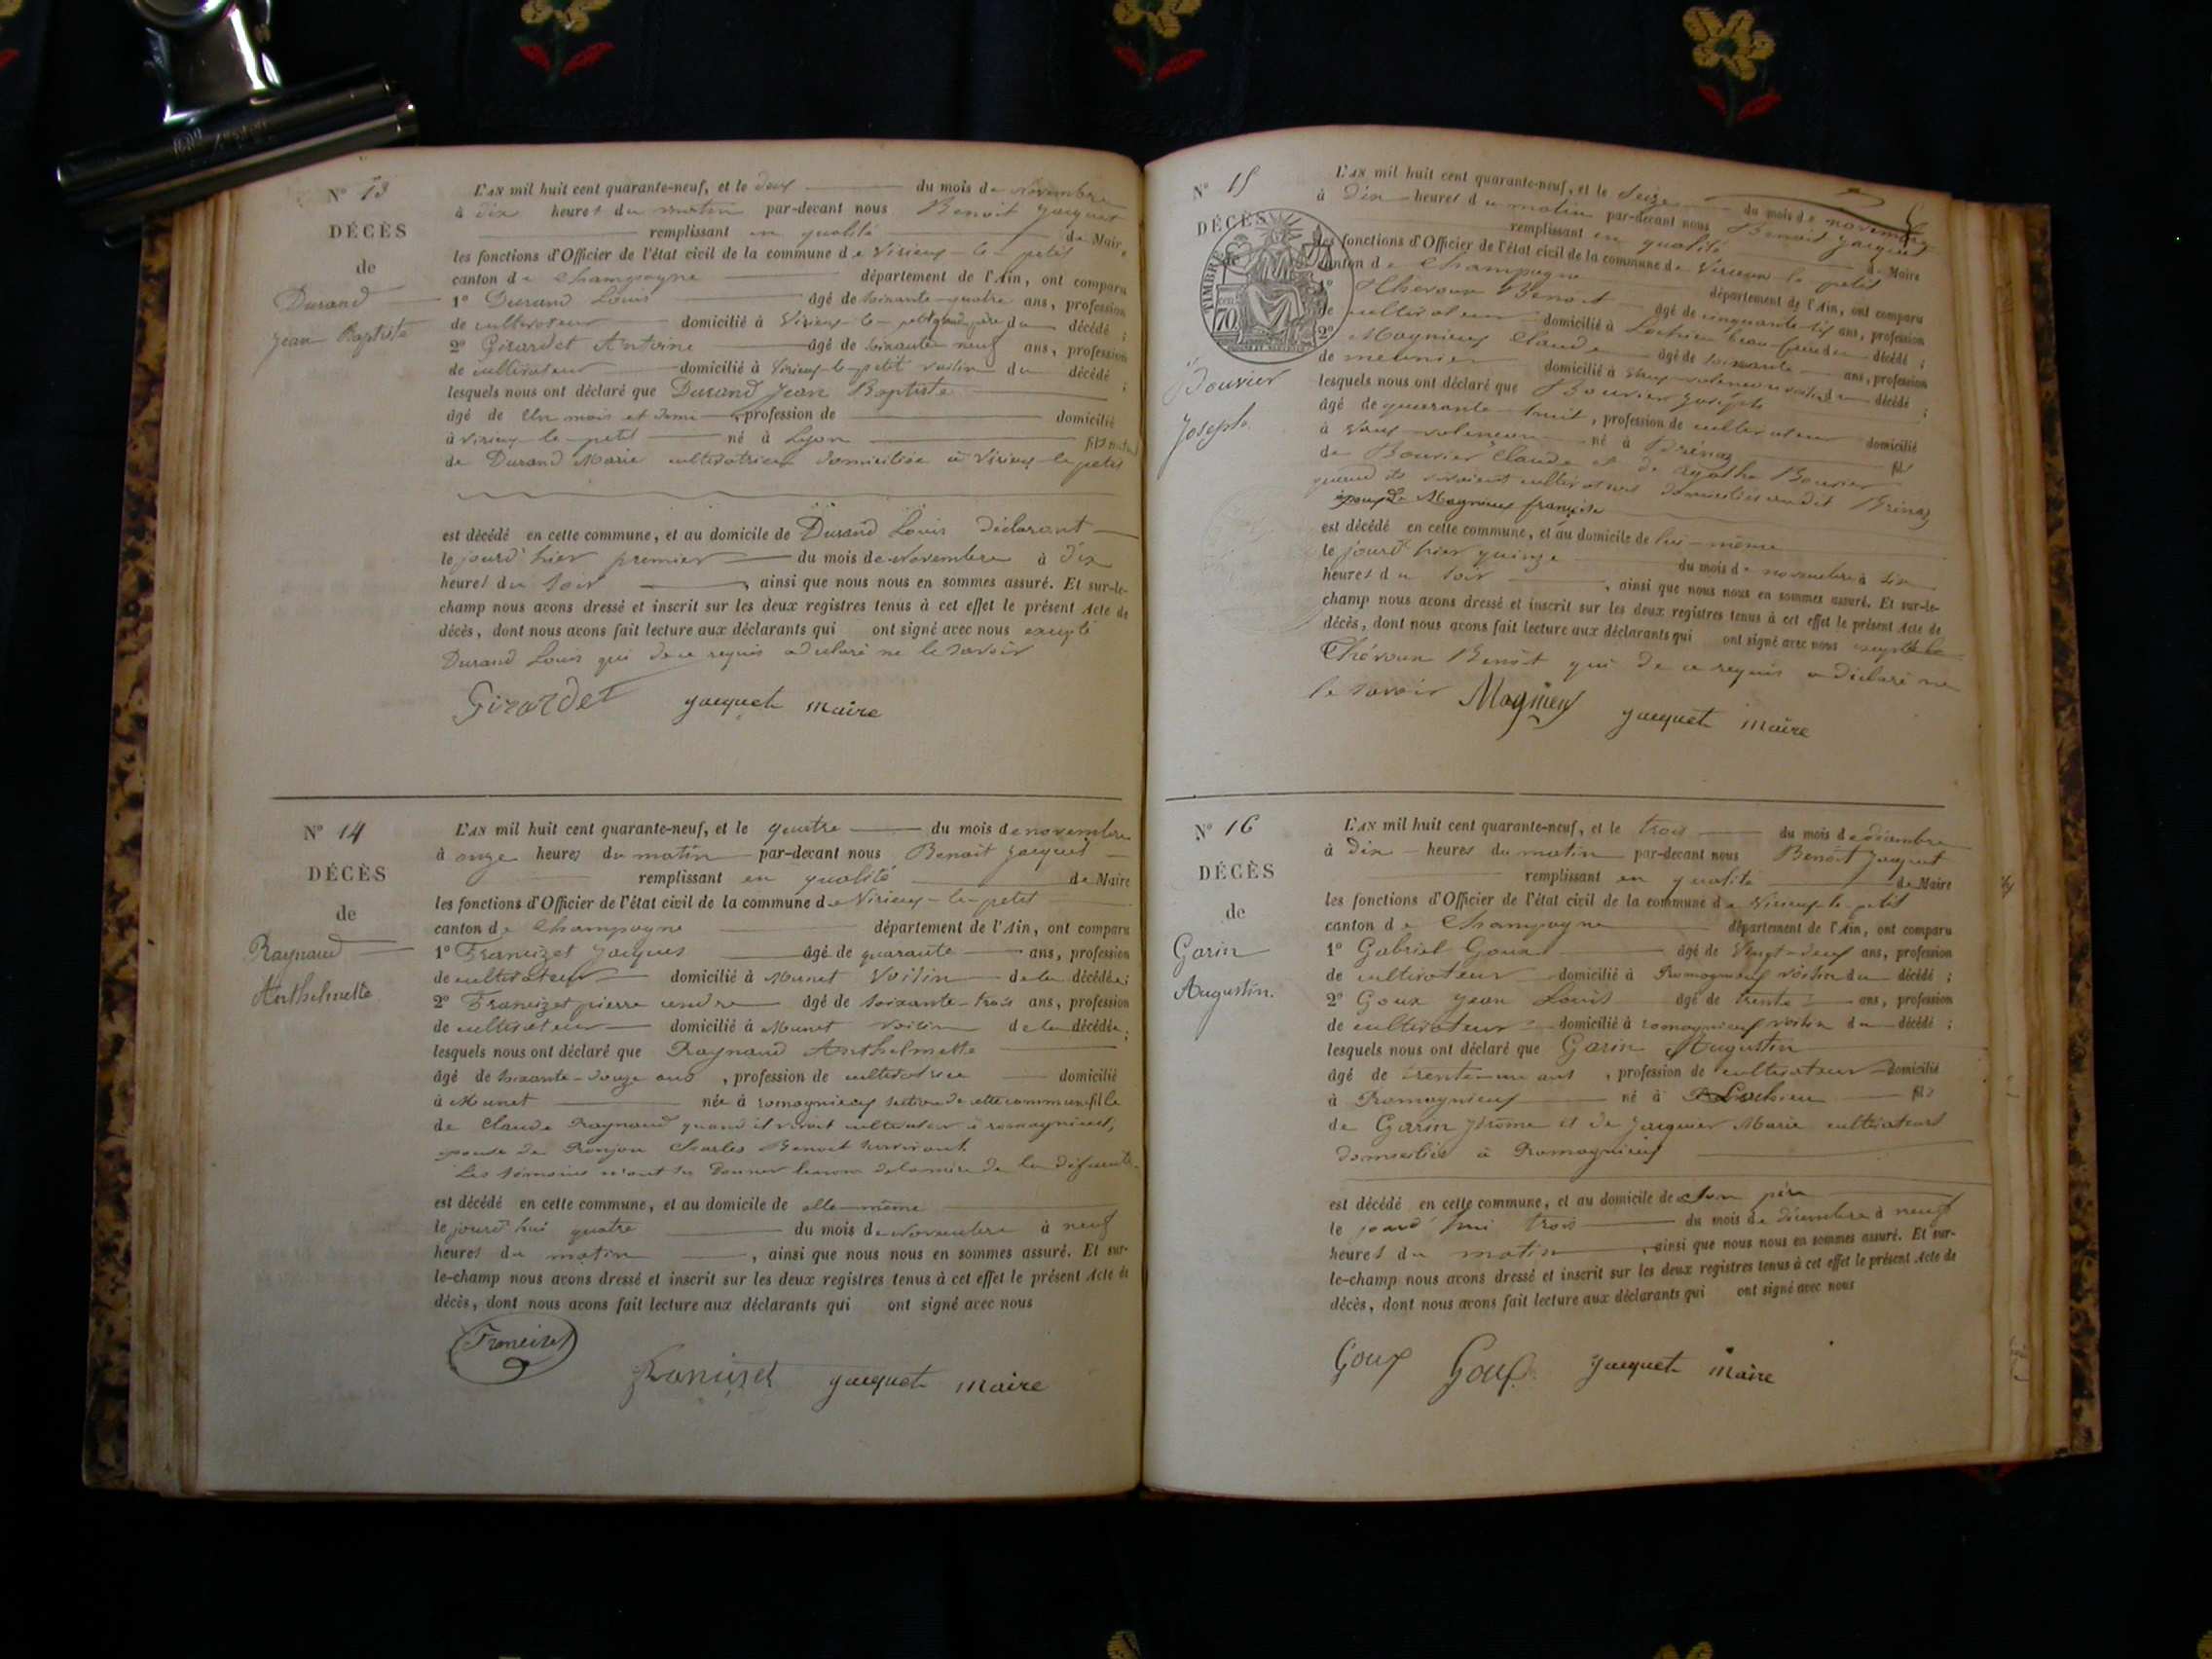 N° 13
DÉCÈS
de
Durand
Jean Baptiste
L'AN mil huit cent quarante-neuf, et le deux du mois de novembre
à dix heures du matin par-devant nous Benoit Jacquet
remplissant en qualité de Maire
les fonctions d'Officier de l'état civil de la commune de Virieux-le-petit
canton de Champagne département de l'Ain, ont comparu
1° Durand Louis âgé de soixante-quatre ans, profession
de cultivateur domicilié à Virieux-le-petit grand père du décédé ;
2° Girardet Antoine âgé de soixante neuf ans, profession
de cultivateur domicilié à Virieux-le-petit voisin du décédé ;
lesquels nous ont déclaré que Durand Jean Baptiste
âgé de Un mois et demi, profession de domicilié
à virieux-le-petit né à Lyon fils naturel
de Durand Marie cultivatrice domiciliée à Virieux-le petit
est décédé en cette commune, et au domicile de Durand Louis déclarant
le jourd'hier premier du mois de Novembre à dix
heures du soir, ainsi que nous nous en sommes assuré. Et sur-le-
champ nous avons dressé et inscrit sur les deux registres tenus à cet effet le présent Acte de
décès, dont nous avons fait lecture aux déclarants qui ont signé avec nous excepté
Durand Louis qui de ce requis a déclaré ne le savoir
Girardet Jacquet maire
N° 14
DÉCÈS
de
Raynaud
Anthelmette
L'AN mil huit cent quarante-neuf, et le quatre du mois de novembre
à onze heures du matin par-devant nous Benoit Jacquet
remplissant en qualité de Maire
les fonctions d'Officier de l'état civil de la commune de Virieux-le-petit
canton de Champagne département de l'Ain, ont comparu
1° Francizet Jacques âgé de quarante ans, profession
de cultivateur domicilié à Munet Voisin de la décédée ;
2° Francizet pierre andre âgé de soixante-trois ans, profession
de cultivateur domicilié à Munet voisin de la décédée ;
lesquels nous ont déclaré que Raynaud Anthelmette
âgé de soixante-douze ans, profession de cultivatrice domicilié
à Munet née à romagnieux section de cette commune fille
de Claude Raynaud quand il vivait cultivateur à romagnieux,
epouse de Charles Benoit survivant
Les témoins n'ont su donner le nom de la mère de la défunte
est décédé en cette commune, et au domicile de elle-même
le jourd'hui quatre du mois de Novembre à neuf
heures du matin, ainsi que nous nous en sommes assuré. Et sur-
le-champ nous avons dressé et inscrit sur les deux registres tenus à cet effet le présent Acte de
décès, dont nous avons fait lecture aux déclarants qui ont signé avec nous
Francizet
Francizet Jacquet maire
N° 15
DÉCÈS
de
TIMBRE
70
Bouvier
Joseph
L'AN mil huit cent quarante-neuf, et le seize du mois de novembre
à dix heures du matin par-devant nous Benoit Jacquet
remplissant en qualité de Maire
les fonctions d'Officier de l'état civil de la commune de Virieux-le petit
canton de Champagne département de l'Ain, ont comparu
1° Théroux Benoit âgé de cinquante-six ans, profession
de cultivateur domicilié à beau-frère du décédé ;
2° Magnieux Claude âgé de soixante ans, profession
de meunier domicilié à voisin du décédé ;
lesquels nous ont déclaré que Bouvier joseph
âgé de quarante huit, profession de cultivateur domicilié
à né à Brénaz fils
de Bouvier Claude et de Agathe Bouvier
quand ils vivaient cultivateurs domiciliés audit Brénaz
époux de Magnieux françoise
est décédé en cette commune, et au domicile de lui-même
le jourd'hier quinze du mois de novembre à six
heures du soir, ainsi que nous nous en sommes assuré. Et sur-le-
champ nous avons dressé et inscrit sur les deux registres tenus à cet effet le présent Acte de
décès, dont nous avons fait lecture aux déclarants qui ont signé avec nous excepté le
Théroux Benôit qui de ce requis a déclaré ne
le savoir Magnieux Jacquet maire
N° 16
DÉCÈS
de
Garin
Augustin.
L'AN mil huit cent quarante-neuf, et le trois du mois de décembre
à dix heures du matin par-devant nous Benoit Jacquet
remplissant en qualité de Maire
les fonctions d'Officier de l'état civil de la commune de Virieux-le-petit
canton de Champagne département de l'Ain, ont comparu
1° Gabriel Goux âgé de Vingt-deux ans, profession
de cultivateur domicilié à Romagnieux voisin du décédé ;
2° Goux Jean Louis âgé de trente ans, profession
de cultivateur domicilié à romagnieux voisin du décédé ;
lesquels nous ont déclaré que Garin Augustin
âgé de trente-un ans, profession de cultivateur domicilié
à Romagnieux né à Lochieu fils
de Garin Jérôme et de Jacquier Marie cultivateurs
domiciliés à Romagnieux
est décédé en cette commune, et au domicile de son père
le jourd'hui trois du mois de décembre à neuf
heures du matin, ainsi que nous nous en sommes assuré. Et sur-
le-champ nous avons dressé et inscrit sur les deux registres tenus à cet effet le présent Acte de
décès, dont nous avons fait lecture aux déclarants qui ont signé avec nous
Goux Goux Jacquet maire